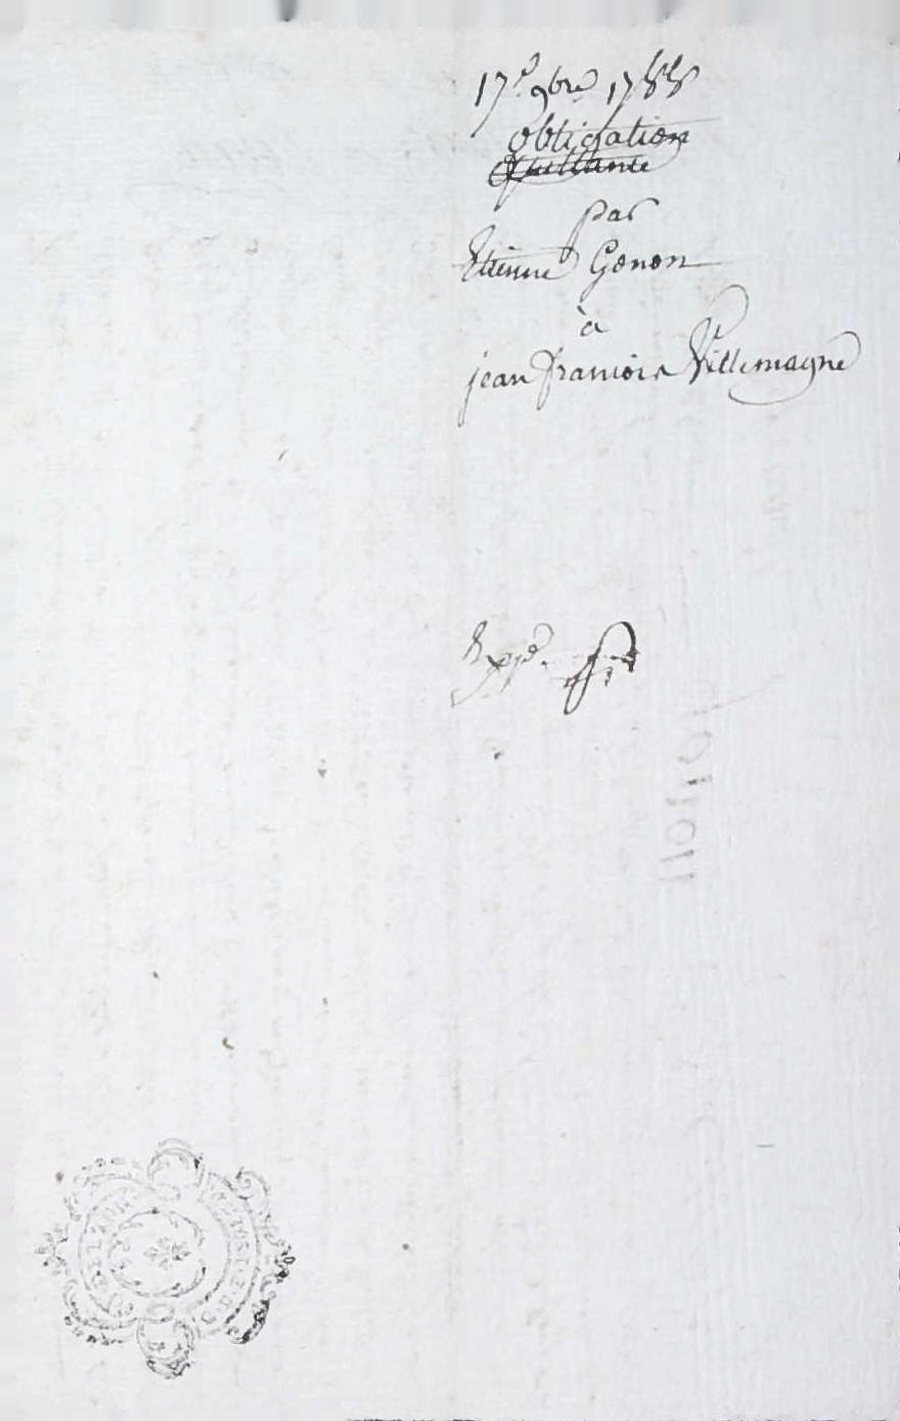 17e 9bre 1788
obligation
Quittance
par
Etienne Genon
à
jean francois Villemagne
Expé.